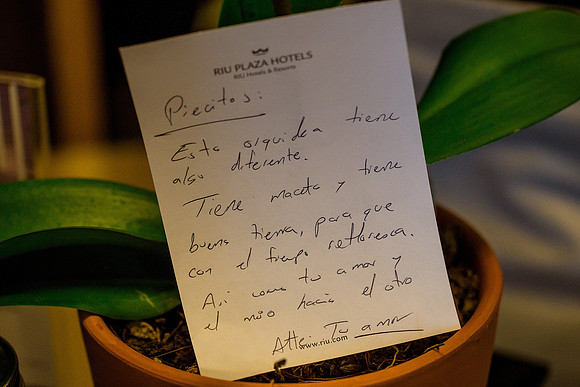 RIU PLAZA HOTELS
RIU Hotels & Resorts
Piecitos:
Esta orquidea tiene
algo diferente.
Tiene maceta y tiene
buena tierra, para que
con el tiempo reflorezca.
Asi como tu amor y
el mio hacia el otro
Atte: Tu amor
www.riu.com